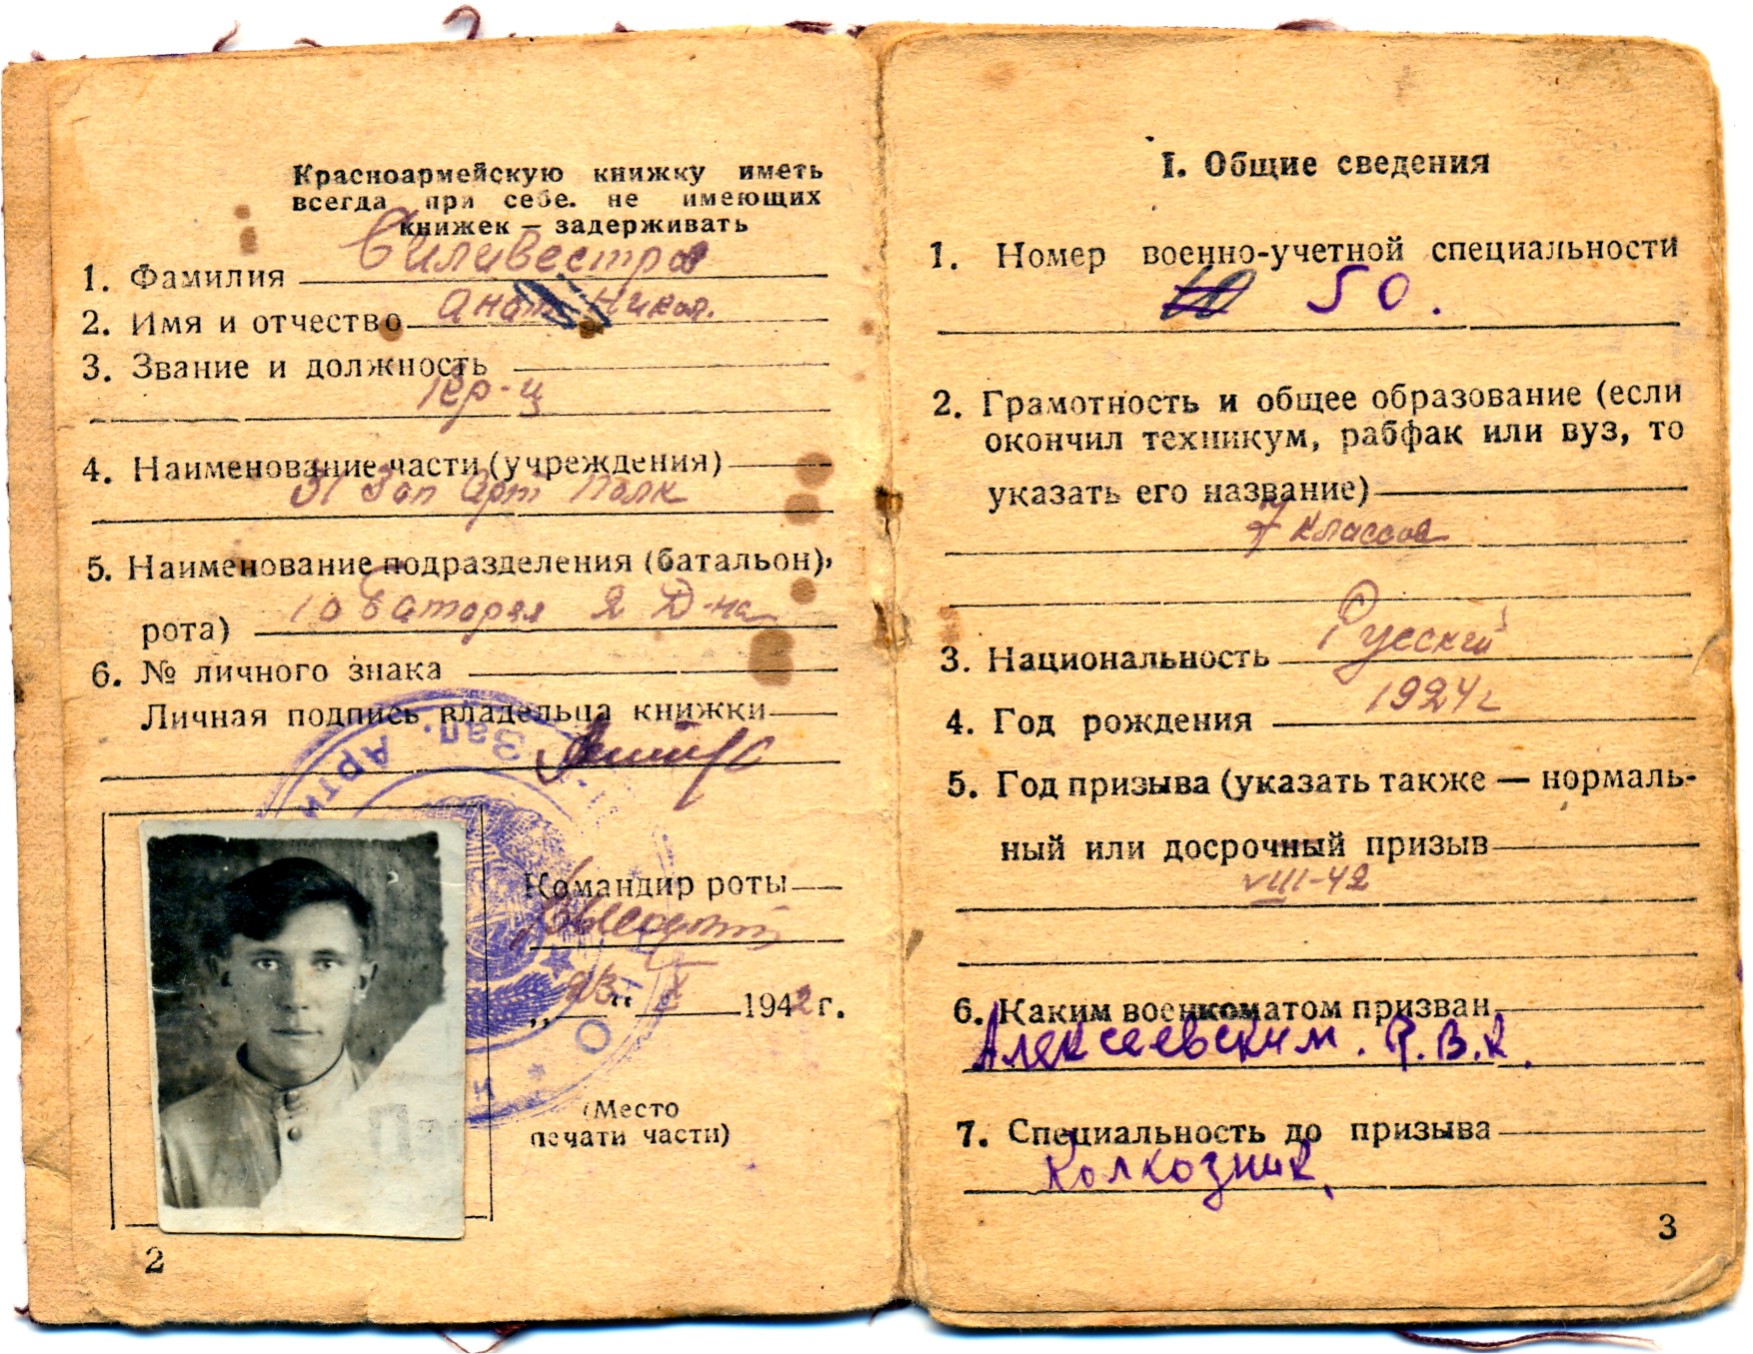 Красноармейскую книжку иметь
всегда при себе. не имеющих
книжек — задерживать
1. Фамилия Силивестров
2. Имя и отчество Анат Никол.
3. Звание и должность
Кр-ц
4. Наименование части (учреждения)
Зап Арт Полк
5. Наименование подразделения (батальон),
рота) 10 батарея 2 Д-на
6. № личного знака
Личная подпись владельца книжки
Зап. Арти
Командир роты
„23“ X 1942 г.
(Место
печати части)
2
I. Общие сведения
1. Номер военно-учетной специальности
50.
2. Грамотность и общее образование (если
окончил техникум, рабфак или вуз, то
указать его название)
7 классов
3. Национальность Русский
4. Год рождения 1924 г
5. Год призыва (указать также — нормаль-
ный или досрочный призыв
VIII-42
6. Каким военкоматом призван
Алексеевским. Р.В.К.
7. Специальность до призыва
Колхозник,
3